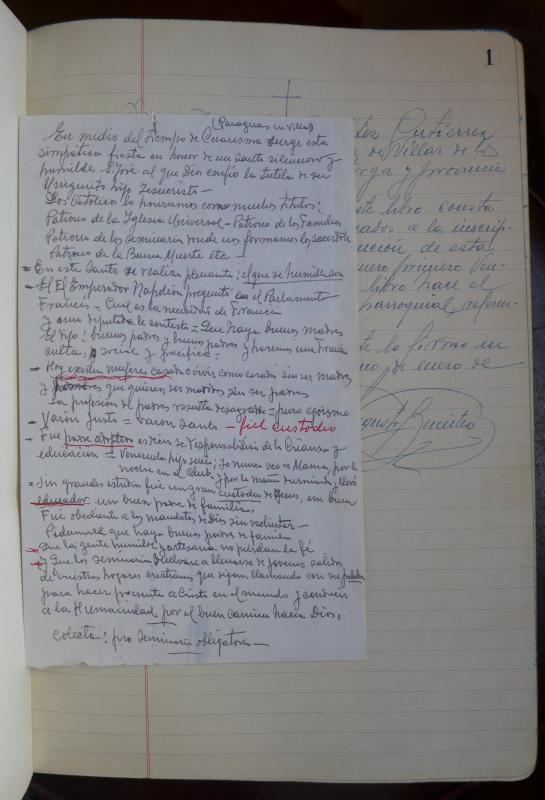 1
(Paraguas en Villar)
En medio del tiempo de Cuaresma surge esta
simpática fiesta en honor de un santo silencioso y
humilde S. José al que Dios confió la tutela de su
Unigenito hijo Jesucristo –
Los Católicos lo honramos con muchos titulos:
Patrono de la Iglesia Universal – Patrono de las Familias
Patrono de los seminarios donde se forman los sacerdotes
Patrono de la Buena Muerte etc
= En este Santo se realiza plenamente: el que se humilla
– El Emperador Napoleón preguntó en el Parlamento
Francés = Cual es la necesidad de Francia
y una diputada le contestó = Que haya buenas madres
El dijo: buenos padres y buenas madres y haremos una Francia
culta, social y pacifica =
– Hoy existen mujeres casadas vivir como casadas sin ser madres
y hombres que quieren ser maridos sin ser padres
la profesión de padres resulta = puro egoismo
– Varón Justo = Varón Santo – fiel custodio
– Fue padre adoptivo de responsabilidad de la Crianza y
educacion = hijo yo nunca veo a Mamá, por la
noche en el club y por la mañana durmiendo,
= Sin grandes estudios fue un gran custodio de Jesus, un buen
educador un buen padre de familia.
Fue obediente a los mandatos de Dios sin rechistar –
Pidamosle que haya buenos padres de familia
– Que la gente humilde y artesana no pierdan la fé
– y Que los Seminarios vuelvan a llenarse de jovenes salidos
de vuestros hogares cristianos que sigan llamando con su palabra
para hacer presente a Cristo en el mundo y conducir
a la Humanidad por el buen camino hacia Dios.
Colecta: pro Seminario obligatoria –
Gutiérrez
de Villar de los
y provincia
este libro consta
cados a la inscrip-
ción de estas
primero Ven-
libro hace el
parroquial, referen-
lo firmo en
de enero de